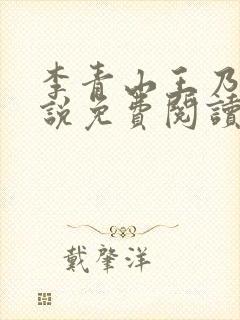 李青山王乃
說免費閱讀
戴肇洋